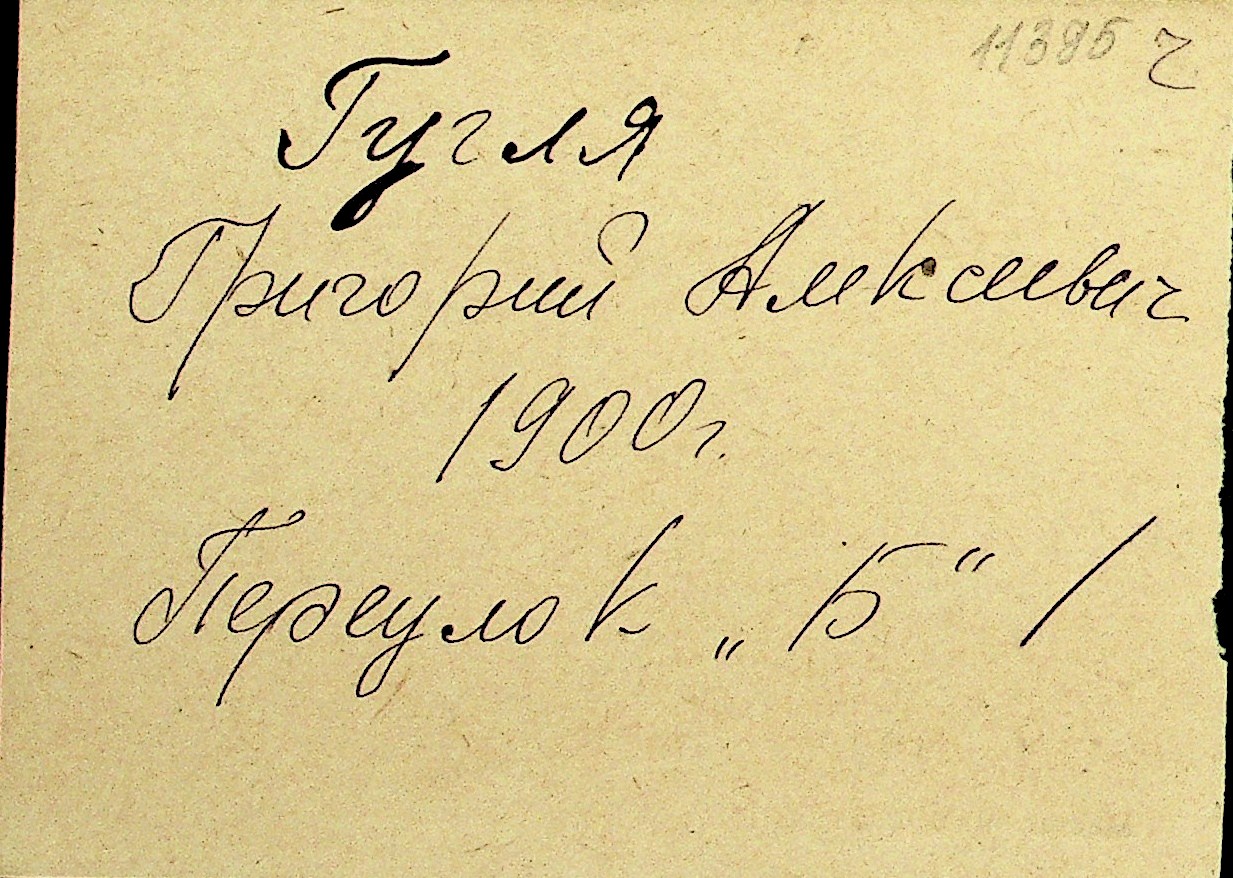 11395 ч
Гугля
Григорий Алексеевич
1900г.
Переулок „Б“ 1